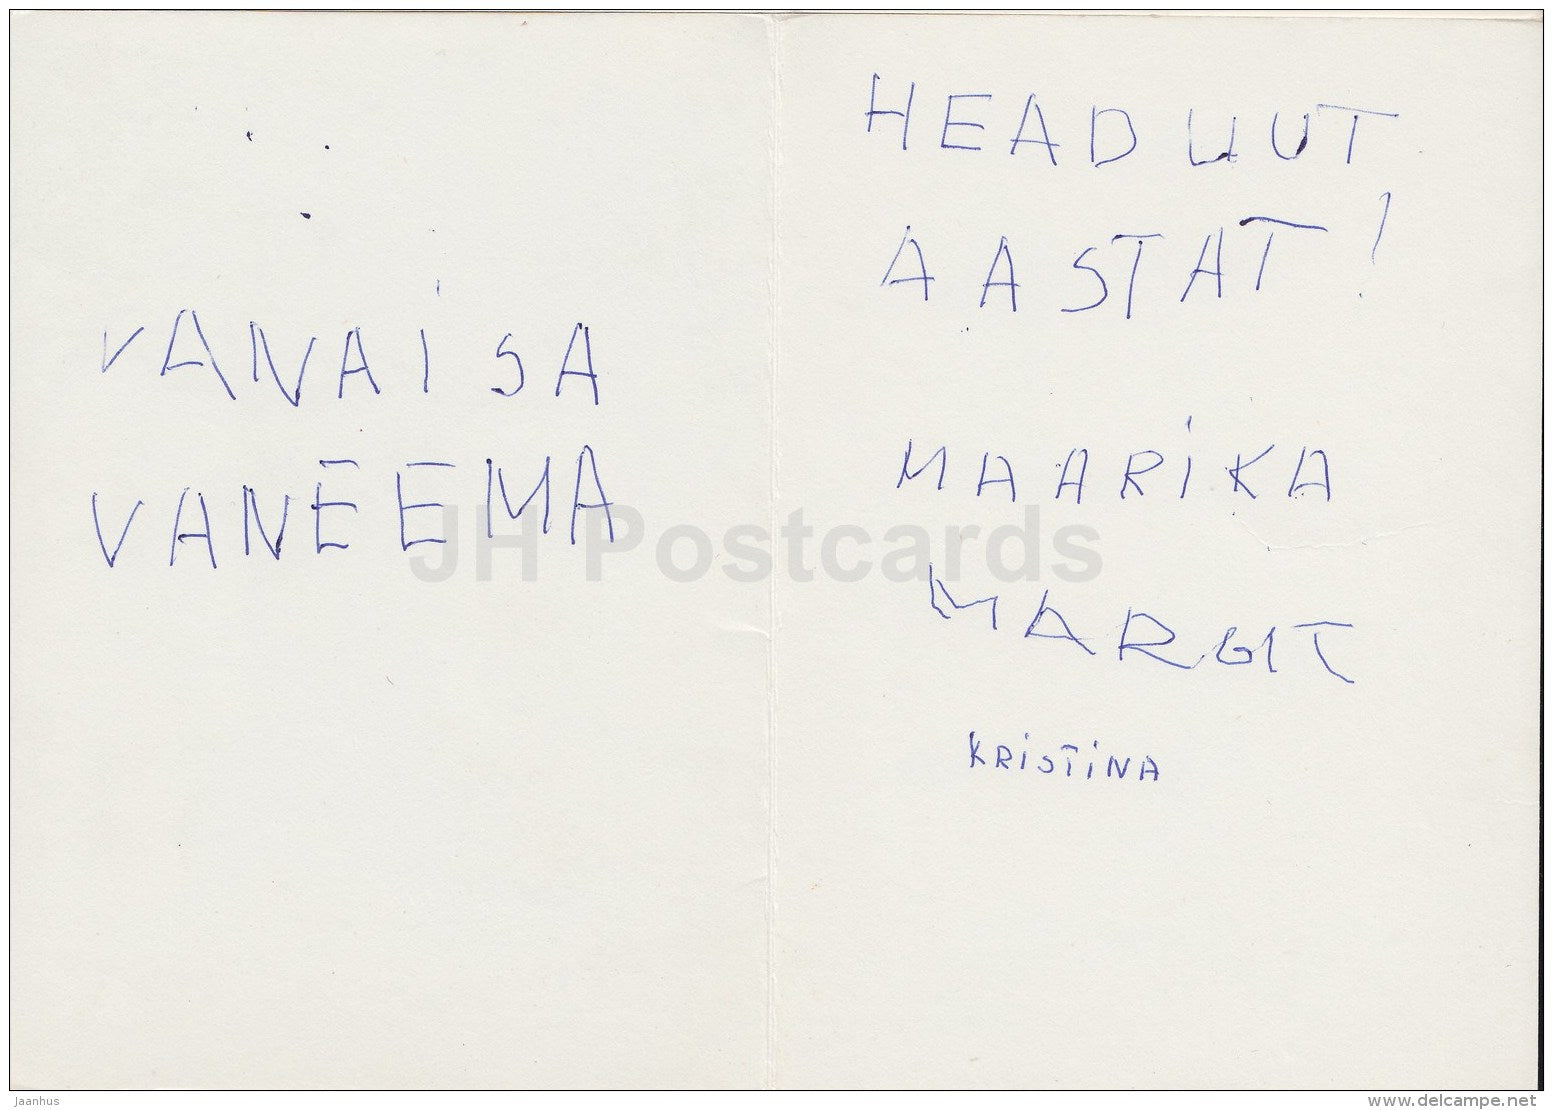 VANAISA
VANEEMA
HEAD UUT
AASTAT!
MAARIKA
MARGIT
KRISTINA
JH Postcards
Jaanhus
www.delcampe.net